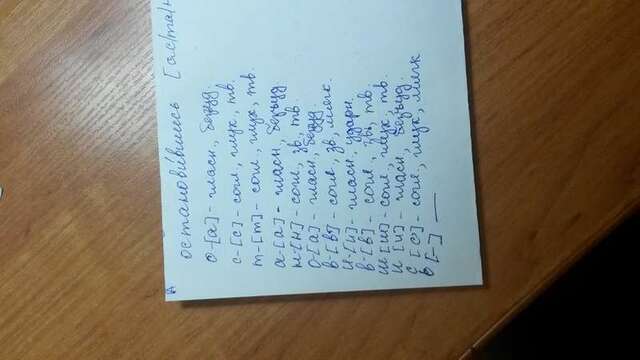 А
остановившись [ас/та/н
о-[а]-гласн., безуд.
с-[с]-согл, глух, тв.
т-[т]-согл, глух, тв.
а-[а]-гласн., безъуд.
н-[н]-согл, зв, тв.
о-[а]-гласн, безуд.
в-[в']-согл, зв, мягк.
и-[и]-гласн, ударн.
в-[в]-согл, зв, тв.
ш-[ш]-согл, глух, тв.
и [и]-гласн, безъуд.
с [с]-согл, глух, мягк
ь [-] —